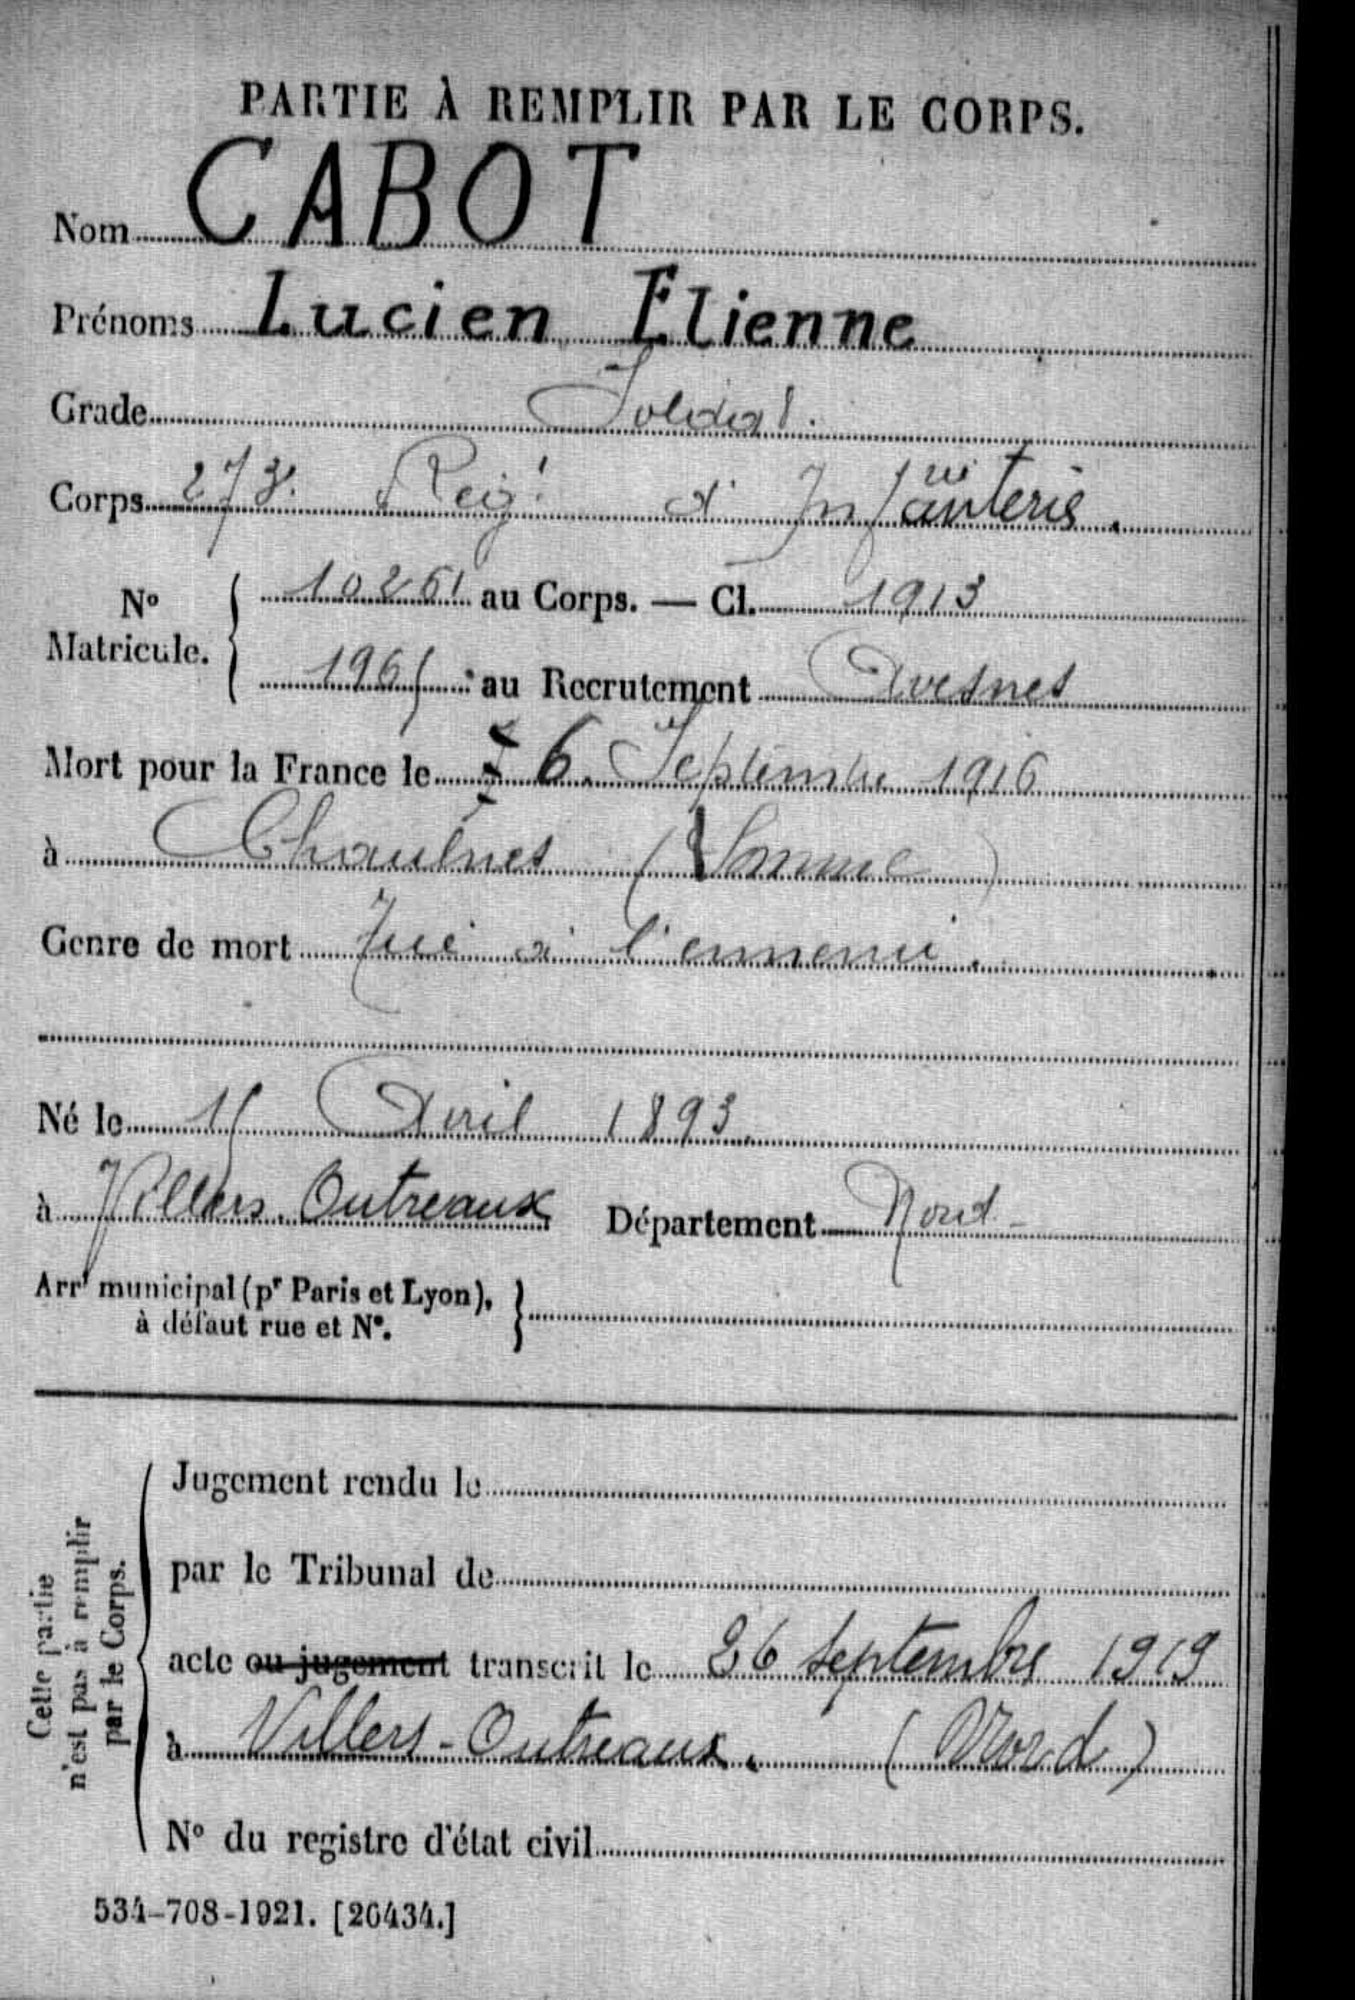 PARTIE À REMPLIR PAR LE CORPS.
Nom CABOT
Prénoms Lucien Etienne
Grade Soldat.
Corps 273. Régt d'Infanterie.
No Matricule. 10261 au Corps. — Cl. 1913
1965 au Recrutement Avesnes
Mort pour la France le 6 Septembre 1916
à Chaulnes (Somme)
Genre de mort Tué à l'ennemi.
Né le 15 Avril 1893.
à Villers-Outreaux Département Nord
Arrt municipal (pr Paris et Lyon), à défaut rue et No.
Cette partie n'est pas à remplir par le Corps.
Jugement rendu le
par le Tribunal de
acte ou jugement transcrit le 26 septembre 1919
à Villers-Outreaux. (Nord)
No du registre d'état civil
534-708-1921. [26434.]